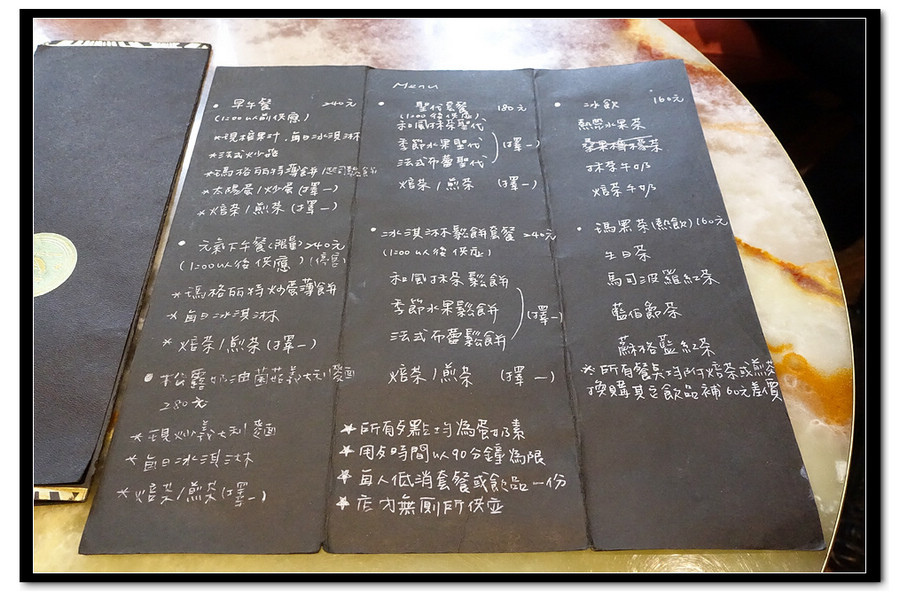 Menu
• 早午餐 240元
(12:00以前供應)
*現榨果汁、每日冰淇淋
*法式吐司
*瑪格麗特薄餅
*太陽蛋/炒蛋(擇一)
*焙茶/煎茶(擇一)
• 元氣下午餐(限量) 240元
(1:00以後供應)
*瑪格麗特炒蛋薄餅
*每日冰淇淋
*焙茶/煎茶(擇一)
• 松露奶油菌菇義大利麵
280元
*現炒義大利麵
*每日冰淇淋
*焙茶/煎茶(擇一)
• 聖代套餐 180元
(1:00後供應)
和風抹茶聖代
季節水果聖代 (擇一)
法式布蕾聖代
焙茶/煎茶 (擇一)
• 冰淇淋鬆餅套餐 240元
(1:00以後供应)
和風抹茶鬆餅
季節水果鬆餅 (擇一)
法式布蕾鬆餅
焙茶/煎茶 (擇一)
★所有餐點均為蛋奶素
★用餐時間以90分鐘為限
★每人低消套餐或飲品一份
★店內無廁所供应
• 冰飲 160元
熱帶水果茶
蘋果檸檬茶
抹茶牛奶
焙茶牛奶
• 瑪黑茶(熱飲) 160元
生日茶
馬可波羅紅茶
藍伯爵茶
蘇格藍紅茶
*所有餐點均附焙茶或煎茶
換購其它飲品補60元差價